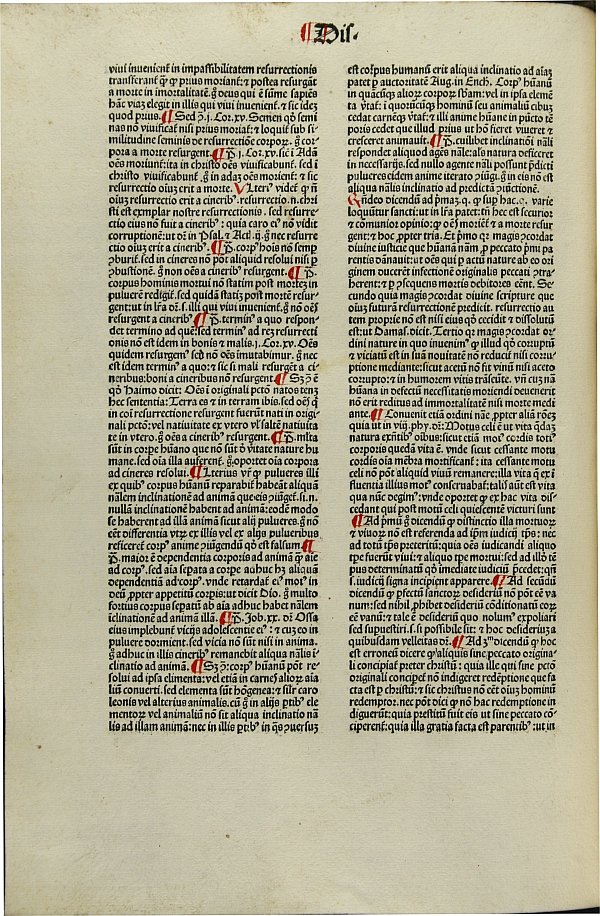 ¶Dis.
viui inuenient̃ in impassibilitatem resurrectionis
transferant̃ q̃ ꝙ prius moriant̃: ⁊ postea resurgãt
a morte in imortalitatẽ. g̊ deus qui ẽ sũme sapiẽs
hãc viaʒ elegit in illis qui viui inuenient̃. ⁊ sic ideʒ
quod prius. ¶ Sed ꝯ.j. Cor.xv. Semen qð semi
nas nõ viuificat̃ nisi prius moriat̃: ⁊ loquit̃ sub si
militudine seminis de resurrectiõe corporꝝ. g̊ cor
pora a morte resurgent. ¶ P̃.j. Cor.xv. sic ĩ Adã
oẽs moriunt̃: ita in christo oẽs viuificabunt̃. sed ĩ
christo viuificabunt̃. g̊ in adaʒ oẽs moriẽt̃: ⁊ sic
resurrectio oĩuʒ erit a morte. Ulteriꝰ videt̃ ꝙ ñ
oĩuʒ resurrectio erit a cineribꝰ. resurrectio .n. chri
sti est exemplar nostre resurrectionis. sed resurre
ctio eius nõ fuit a cineribꝰ: quia caro eiꝰ nõ vidit
corruptionẽ: ut dẽ in Psal. ⁊ Act.ij. g̊ nec resurre
ctio oĩuʒ erit a cineribꝰ. ¶ P̃. corpꝰ hoĩs nõ semp
ꝯburit̃. sed in cineres nõ põt aliquid resolui nisi ꝑ
ꝯbustionẽ. g̊ non oẽs a cineribꝰ resurgent. ¶ P̃.
corpus hominis mortui nõ statim post morteʒ in
puluerẽ redigit̃. sed quidã statiʒ post mortẽ resur-
gent: ut in l̃ra dĩ. s. illi qui viui inuenient̃. g̊ nõ oẽs
resurgent a cineribꝰ. ¶ P̃. terminꝰ a quo respon-
det termino ad quẽ: sed terminꝰ ad reʒ resurrecti
onis nõ est idem in bonis ⁊ malis .j. Cor.xv. Oẽs
quidem resurgemꝰ sed nõ oẽs imutabimur. g̊ nec
est idem terminꝰ a quo: ⁊ sic si mali resurgẽt a ci-
neribus: boni a cineribus nõ resurgent ¶ Sʒ ꝯ ẽ
qð Haimo dicit: Oẽs originali pctõ natos tenʒ
hec sententia: Terra es ⁊ in terram ibis. sed oẽs q̃
in cõi resurrectione resurgent fuerũt nati in origi-
nali pctõ: vel natiuitate ex vtero vl̃ saltẽ natiuita
te in vtero. g̊ oẽs a cineribꝰ resurgent. ¶ P̃. mlta
sũt in corpe hũano que nõ sũt ð vĩtate nature hu
mane. sed oĩa illa auferent̃. g̊ oportet oĩa corpora
ex cineres resolui. ¶ Ulterius vr̃ ꝙ pulueres illi
ex quibꝰ corpus hũanũ reparabit̃ habeãt aliquã
nãlem inclinationẽ ad animã que eis ꝯiũget̃. si .n.
nullã inclinationẽ habent ad animam: eodẽ modo
se haberent ad illã animã sicut alij pulueres. g̊ nõ
eẽt differentia vtꝝ ex illis vel ex alijs pulueribus
reficeret̃ corpꝰ anime ꝯiũgendũ qð est falsum. ¶
P̃. maior ẽ dependentia corporis ad animã ꝙ aĩe
ad corpꝰ. sed aĩa separata a corpe adhuc hʒ aliquã
dependentiã ad corpꝰ. vnde retardat̃ eiꝰ motꝰ in
deũ ꝓpter appetitũ corpis: ut dicit Dio. g̊ multo
fortius corpus sepatũ ab aĩa adhuc habet nãlem
ĩclinationẽ ad animã illã. ¶ P̃. Job.xx. dĩ Ossa
eius implebunt̃ vicijs adolescentie eiꝰ: ⁊ cuʒ eo in
puluere dormient. sed vicia nõ sũt nisi in anima.
g̊ adhuc in illis cineribꝰ remanebit aliqua nãlis ĩ
clinatio ad animã. ¶ Sʒ ꝯ: corpꝰ hũanũ põt re-
solui ad ipsa elimenta: vel etiã in carnes alioꝝ aĩa
liũ conuerti. sed elementa sũt hõgenea: ⁊ silr̃ caro
leonis vel alterius animalis. cũ g̊ in alijs ptibꝰ ele
mentoꝝ vel animaliũ nõ sit aliqua inclinatio nã
lis ad illam animã: nec in illis ptibꝰ in q̃s ꝯuersuʒ
est corpus humanũ erit aliqua inclinatio ad aĩaʒ
patet ꝑ auctoritatẽ Aug. in Ench. Corpꝰ hũanũ
in quãcũqʒ alioꝝ corpoꝝ sbãm: vel in ipsa elemẽ
ta v̾tat̃: i quorũcũqʒ hominũ seu animaliũ cibuʒ
cedat carnẽqʒ v̾tat̃: ⁊ illi anime hũane in pũcto tẽ
poris cedet que illud prius ut hõ fieret viueret ⁊
cresceret animauit. ¶ P̃. cuilbet inclinatiõi nãli
respondet aliquod agẽs nãle: alʼs natura deficeret
in necessarijs. sed nullo agente nãli possunt p̃dicti
pulueres eidem anime iterato ꝯiũgi. g̊ in eis nõ est
aliqua nãlis inclinatio ad predictã ꝯiũctionẽ.
Rñdeo dicendũ ad p̃maʒ.q. ꝙ sup hac .q. varie
loquũtur sancti: ut in l̃ra patet: tñ hec est securior
⁊ cõmunior opinio: ꝙ oẽs moriẽt̃ ⁊ a morte resur
gent: ⁊ hoc ꝓpter tria. Et p̃mo q: magis ꝯcordat
diuine iusticie que hũanã nãm ꝓ peccato p̃mi pa-
rentis dãnauit: ut oẽs qui ꝑ actũ nature ab eo ori
ginem ducerẽt infectionẽ originalis peccati ꝯtra-
herent: ⁊ ꝑ ꝯsequens mortis debitores eẽnt. Se
cundo quia magis ꝯcordat diuine scripture que
oĩuʒ futurã resurrectionẽ predicit. resurrectio au
tem proprie nõ est nisi eius qð cecidit ⁊ dissolutũ
est: ut Damas. dicit. Tertio q: magis ꝯcordat or
dini nature in quo inuenimꝰ ꝙ illud qð corruptũ
⁊ viciatũ est in suã nouitatẽ nõ reducit̃ nisi corru-
ptione mediante: sicut acetũ nõ fit vinũ nisi aceto
corrupto: ⁊ in humorem vitis trãseũte. vñ cuʒ nã
hũana in defectũ necessitatis moriendi deuenerit
nõ erit reditus ad immortalitatẽ nisi morte medi
ante. ¶ Conuenit etiã ordini nãe ꝓpter aliã rõeʒ
quia ut in viij. phy. dĩ: Motus celi ẽ ut vita q̃daʒ
natura exñtibꝰ oĩbus: sicut etiã motꝰ cordis totiꝰ
corporis quedã vita ẽ. vnde sicut cessante motu
cordis oĩa mẽbra mortificant̃: ita cessante motu
celi nõ põt aliquid viuũ remanere: illa vita q̃ ex ĩ-
fluentia illius motꝰ conseruabat̃: talis aũt est vita
qua nũc degimꝰ: vnde oportet ꝙ ex hac vita dis-
cedant qui post motũ celi quiescentẽ victuri sunt
¶ Ad p̃mũ g̊ dicendũ ꝙ distinctio illa mortuoꝝ
⁊ viuoꝝ nõ est referenda ad ip̃m iudicij tp̃s: nec
ad totũ tp̃s preteritũ: quia oẽs iudicandi aliquo
tp̃e fuerũt viui: ⁊ aliquo tp̃e mortui: sed ad illð tẽ
pus determinatũ qð ĩmediate iudiciũ p̃cedet: qñ
s. iudicij signa incipient apparere. ¶ Ad secũdũ
dicendũ ꝙ ꝑfectũ sanctoꝝ desideriũ nõ põt eẽ va
num: sed nihil ꝓhibet desideriũ cõditionatũ eorꝝ
eẽ vanũ: ⁊ tale ẽ desideriũ quo nolumꝰ expoliari
sed supuestiri. s. si possibile sit: ⁊ hoc desideriuʒ a
quibusdam velleitas dr̃. ¶ Ad .3ᵐ dicendũ ꝙ hoc
est erroneũ dicere ꝙ aliquis sine peccato origina-
li concipiat̃ preter christũ: quia ille qui sine pctõ
originali conciperet̃ nõ indigeret redẽptione que fa
cta est ꝑ christũ: ⁊ sic christus nõ eẽt oĩuʒ hominũ
redemptor. nec põt dici ꝙ nõ hac redemptione in
diguerũt: quia prestitũ fuit eis ut sine peccato cõ
ciperent̃: quia illa gratia facta est parentibꝰ: ut in